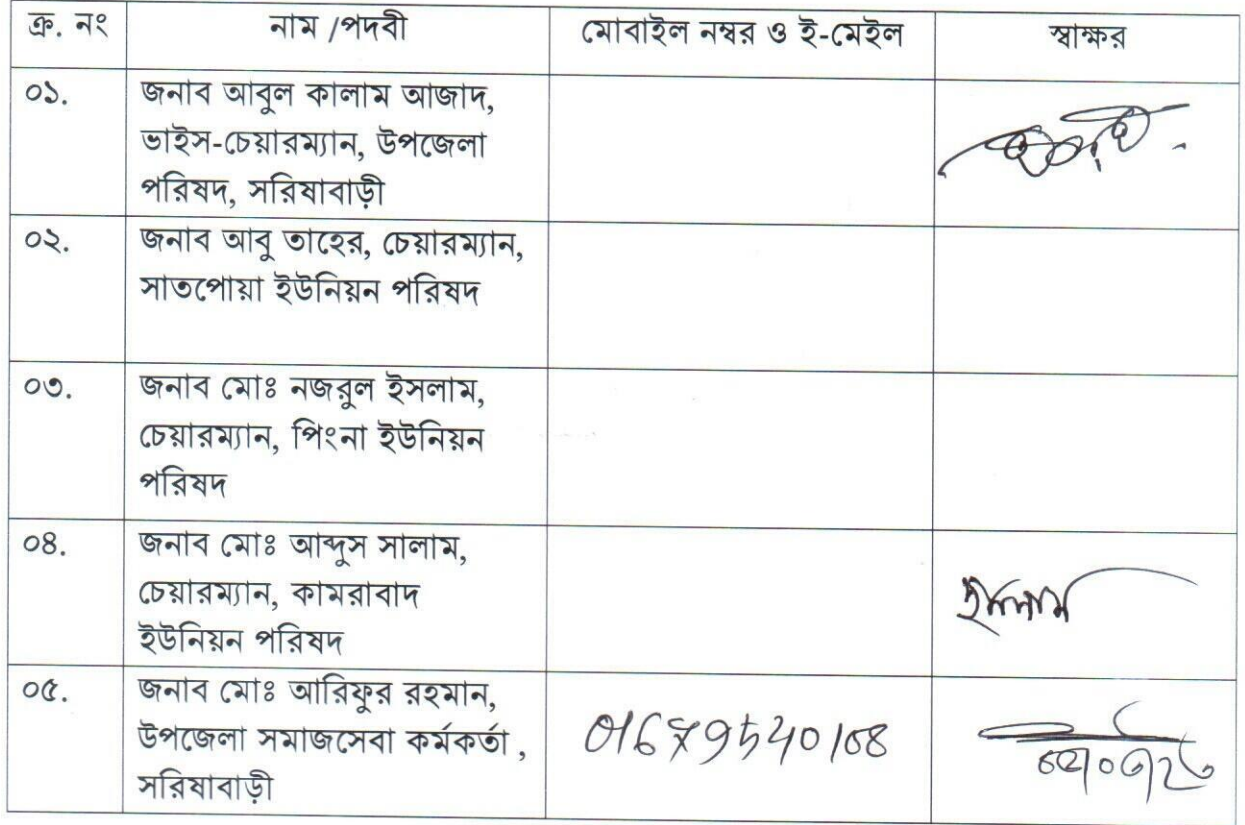 ক্র. নং নাম /পদবী মোবাইল নম্বর ও ই-মেইল স্বাক্ষর
০১. জনাব আবুল কালাম আজাদ,
ভাইস-চেয়ারম্যান, উপজেলা
পরিষদ, সরিষাবাড়ী
০২. জনাব আবু তাহের, চেয়ারম্যান,
সাতপোয়া ইউনিয়ন পরিষদ
০৩. জনাব মোঃ নজরুল ইসলাম,
চেয়ারম্যান, পিংনা ইউনিয়ন
পরিষদ
০৪. জনাব মোঃ আব্দুস সালাম,
চেয়ারম্যান, কামরাবাদ
ইউনিয়ন পরিষদ
০৫. জনাব মোঃ আরিফুর রহমান,
উপজেলা সমাজসেবা কর্মকর্তা ,
সরিষাবাড়ী